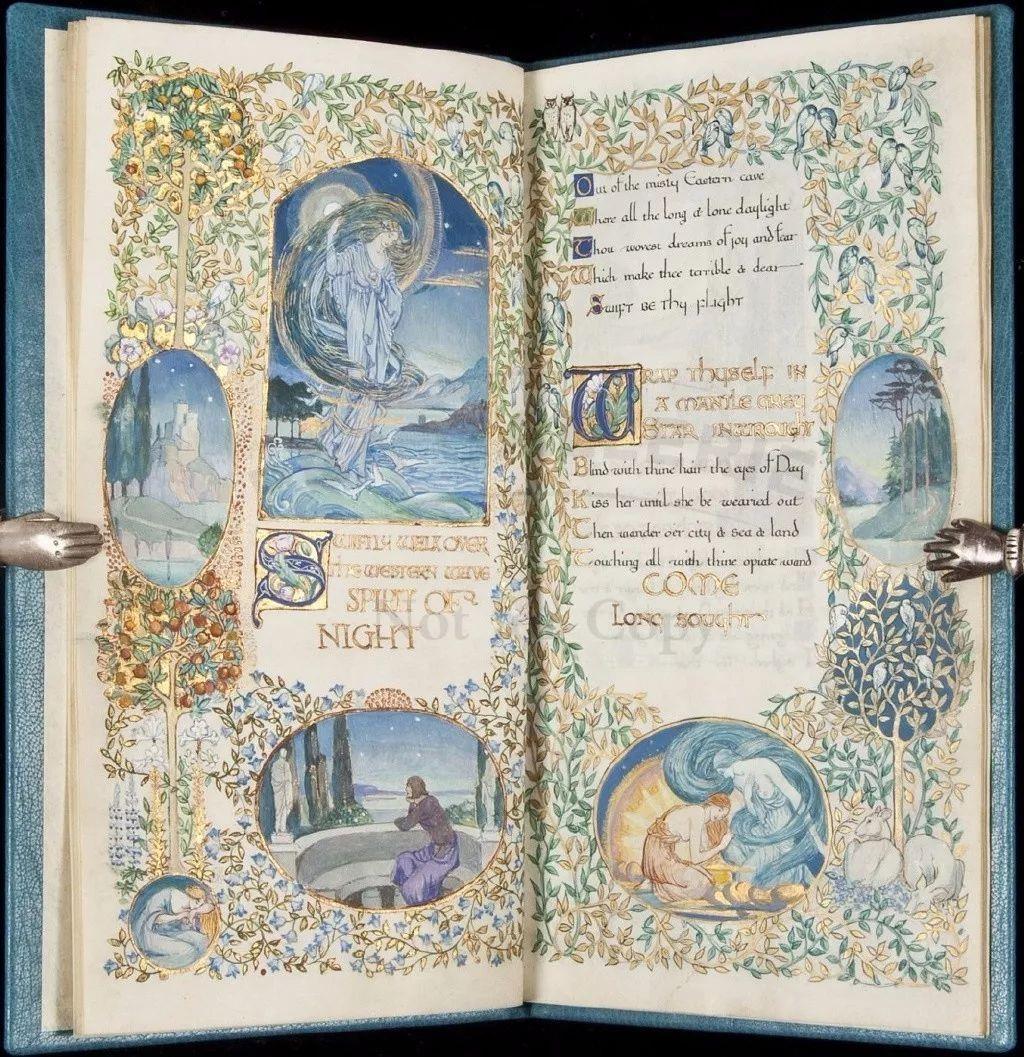 SWIFTLY WALK OVER
THE WESTERN WAVE
SPIRIT OF
NIGHT
Out of the misty Eastern cave
Where all the long & lone daylight
Thou wovest dreams of joy and fear
Which make thee terrible & dear
SWIFT BE THY FLIGHT
WRAP THYSELF IN
A MANTLE GREY
STAR INWROUGHT
Blind with thine hair the eyes of Day
Kiss her until she be wearied out
Then wander o'er city & sea & land
Touching all with thine opiate wand
COME
LONG SOUGHT
Not Copy